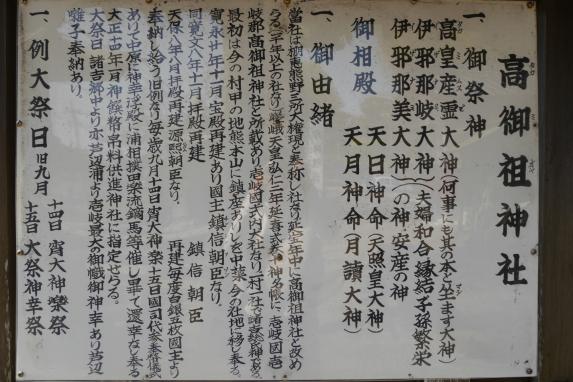 高御祖神社
一、御祭神
高皇産霊大神（何事にも其の本と坐ます大神）
伊耶那岐大神
伊耶那美大神
（夫婦和合縁結子孫繁栄
の神安産の神）
御相殿
天日神命（天照皇大神）
天月神命（月讀大神）
一、御由緒
当社は樹恵熊野三所大権現と奉称し社なり延宝年中に高御祖神社と改め
うる二千年以上の社なり嵯峨天皇弘仁三年延喜式巻神名帳に壱岐国壱
岐郡高御祖神社と所載あり壱岐国式内大社なり（一村一社で諸吉総氏神である）
最初は今の村甲の地熊本山に鎮座ありしを中葉今の社地に移し奉る
寛永廿年十月宝殿再建あり国主鎮信朝臣なり、
同寛文八年十一月拝殿再建　鎮信朝臣
天保八年八月拝殿再建源熈朝臣なり、再建毎度白銀五枚国主より
奉納し給う旧例なり毎歳九月十四日宵大神楽十五日国司代参奉幣儀式
ありて中原に神幸浮殿に浦相撲田楽流鏑馬等催し畢て還幸なし奉る
大正十四年一月神饌幣帛料供進神社に指定せらる。
大祭日諸吉郷中より亦芦辺浦より壱岐最大御幟御神幸あり芦辺
囃子奉納あり。
一、例大祭日旧九月
十四日宵大神楽祭
十五日大祭神幸祭